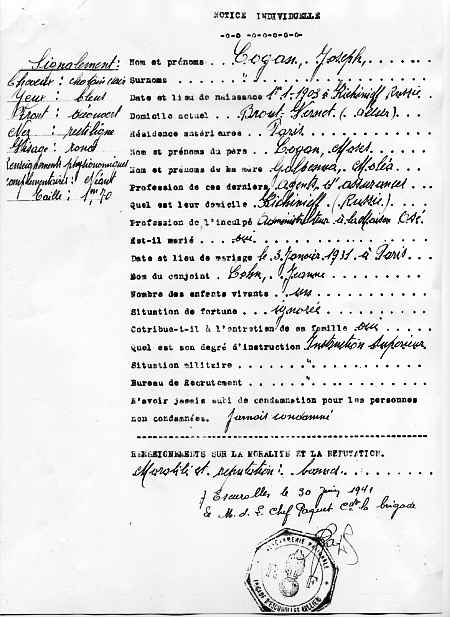 NOTICE INDIVIDUELLE
-o-o -o-o-o-o-o-
Signalement:
Cheveux : chatain
Yeux : bleu
Front : découvert
Nez : rectiligne
Visage : rond
renseignements physionomiques
complementaires :
Taille : 1m,70
Nom et prénoms . . Cogan, Joseph,
Surnoms . . . "
Date et lieu de naissance 1er.1.1903 à Kichineff, Russie
Domicile actuel . . Brout-Vernet (Allier)
Résidence antérieures . Paris
Nom et prénoms du père . . Cogan, Moses
Nom et prénoms de la mère
Profession de ces derniers Agents, et assurances
Quel est leur domicile . Kichineff (Russie)
Profession de l'inculpé Administrateur à la Maison
Est-il marié . . . oui
Date et lieu de mariage le 3 Janvier 1931 à Paris
Nom du conjoint . Jeanne
Nombre des enfants vivants . un
Situation de fortune . . ignorée
Cotribue-t-il à l'entretien de sa famille oui
Quel est son degré d'instruction Instruction Supérieure
Situation militaire . . . "
Bureau de Recrutement . . . "
N'avoir jamais subi de condamnation pour les personnes
non condamnées. Jamais condamné
RENSEIGNEMENTS SUR LA MORALITE ET LA REPUTATION.
Moralité et réputation : bonnes
à Escurolles le 30 juin 1941
Le M. d. L. Chef Paquet Cdt la brigade
GENDARMERIE NATIONALE